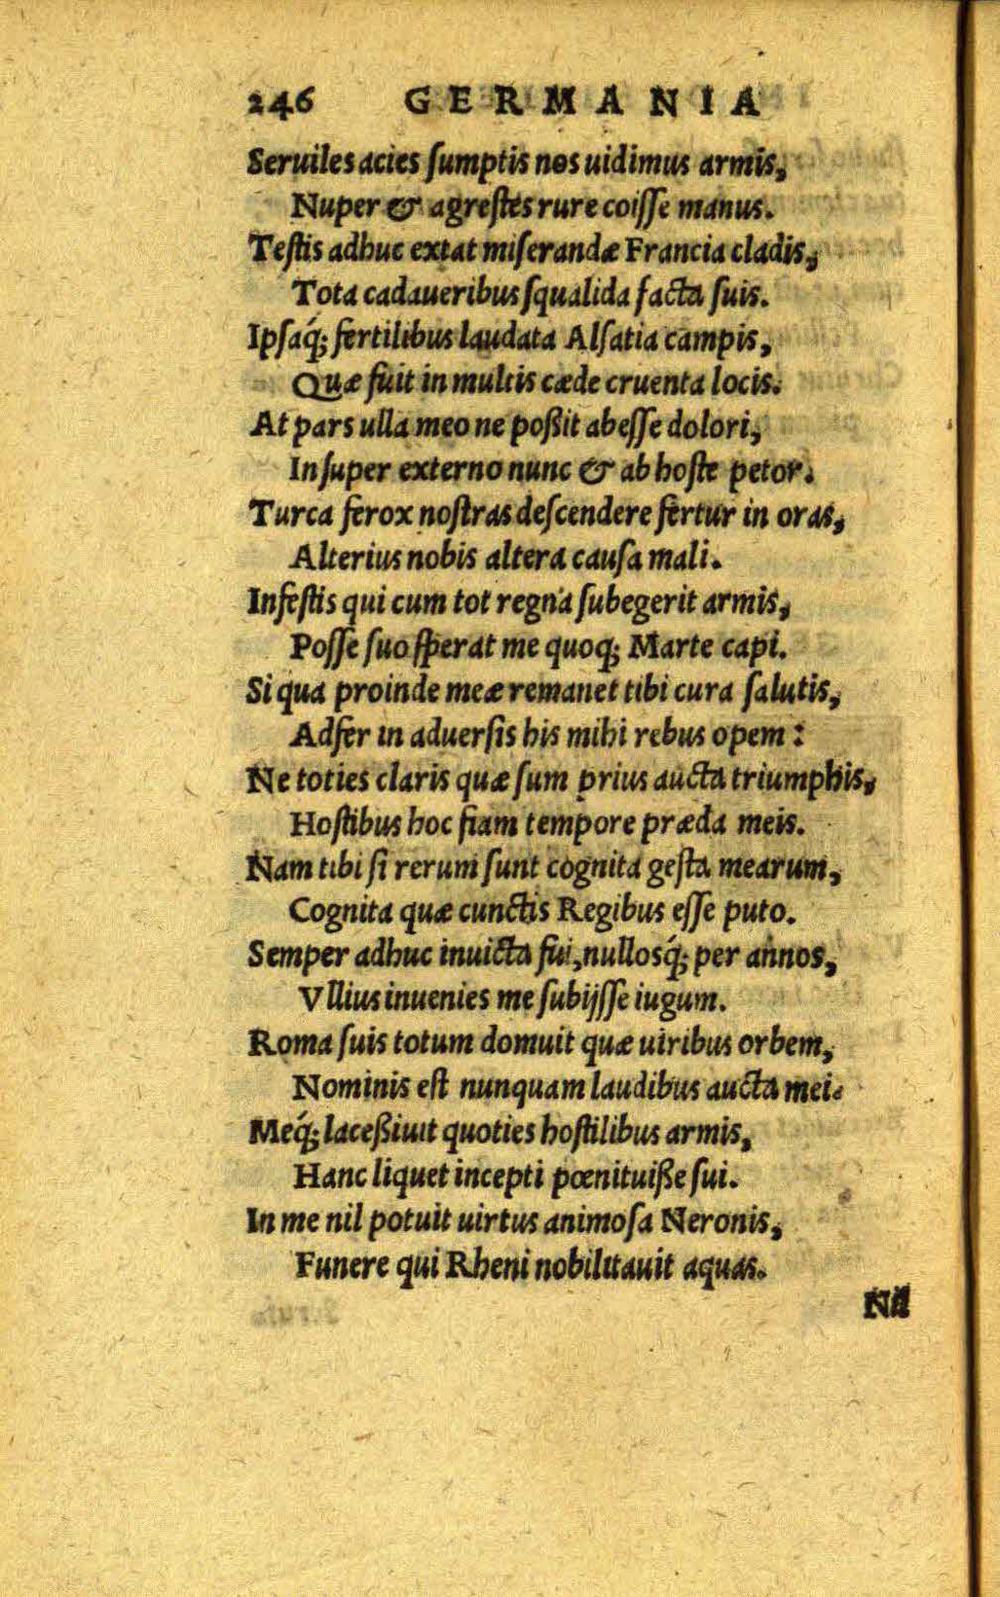 246 GERMANIA
Seruiles acies ſumptis nos uidimus armis,
Nuper & agreſtes rure coiſſe manus.
Teſtis adhuc extat miſerandæ Francia cladis,
Tota cadaueribus ſqualida facta ſuis.
Ipſaq́; fertilibus laudata Alſatia campis,
Quæ fuit in multis cæde cruenta locis.
At pars ulla meo ne poßit abeſſe dolori,
Inſuper externo nunc & ab hoſte petor.
Turca ferox noſtras deſcendere fertur in oras,
Alterius nobis altera cauſa mali.
Infeſtis qui cum tot regna ſubegerit armis,
Poſſe ſuo ſperat me quoq; Marte capi.
Si qua proinde meæ remanet tibi cura ſalutis,
Adfer in aduerſis his mihi rebus opem:
Ne toties claris quæ ſum prius aucta triumphis,
Hoſtibus hoc fiam tempore præda meis.
Nam tibi ſi rerum ſunt cognita geſta mearum,
Cognita quæ cunctis Regibus eſſe puto.
Semper adhuc inuicta fui, nullosq́; per annos,
Vllius inuenies me ſubijſſe iugum.
Roma ſuis totum domuit quæ uiribus orbem,
Nominis eſt nunquam laudibus aucta mei.
Meq́; laceßiuit quoties hoſtilibus armis,
Hanc liquet incepti pœnituiße ſui.
In me nil potuit uirtus animoſa Neronis,
Funere qui Rheni nobilitauit aquas.
Nil